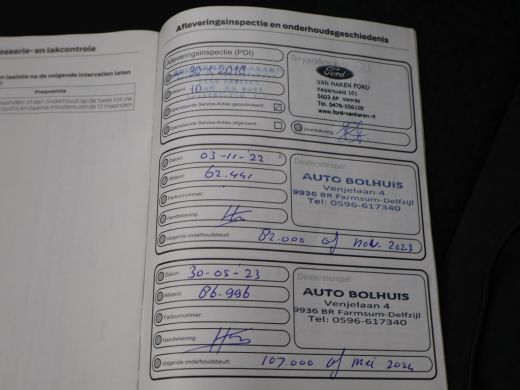 Afleveringsinspectie en onderhoudsgeschiedenis
osserie- en lakcontrole
en laatste na de volgende intervallen laten
Frequentie
maanden of een onderhoud op de twee tot uw
Afleveringsinspectie (PDI)
2018
10
Openstaande Service-Acties gecontroleerd:
Openstaande Service-Acties uitgevoerd:
Ford
VAN HAREN FORD
Keizersveld 101
5803 AP Venray
Tel. 0478-556100
www.ford-vanharen.nl
Handtekening:
Datum: 03-11-22
Afstand: 62.441
Factuurnummer:
Handtekening:
Volgende onderhoudsbeurt: 82.000 of nov. 2023
Dealerstempel
AUTO BOLHUIS
Venjelaan 4
9936 BR Farmsum-Delfzijl
Tel: 0596-617340
Datum: 30-05-23
Afstand: 86.996
Factuurnummer:
Handtekening:
Volgende onderhoudsbeurt: 107.000 of mei 2024
Dealerstempel
AUTO BOLHUIS
Venjelaan 4
9936 BR Farmsum-Delfzijl
Tel: 0596-617340